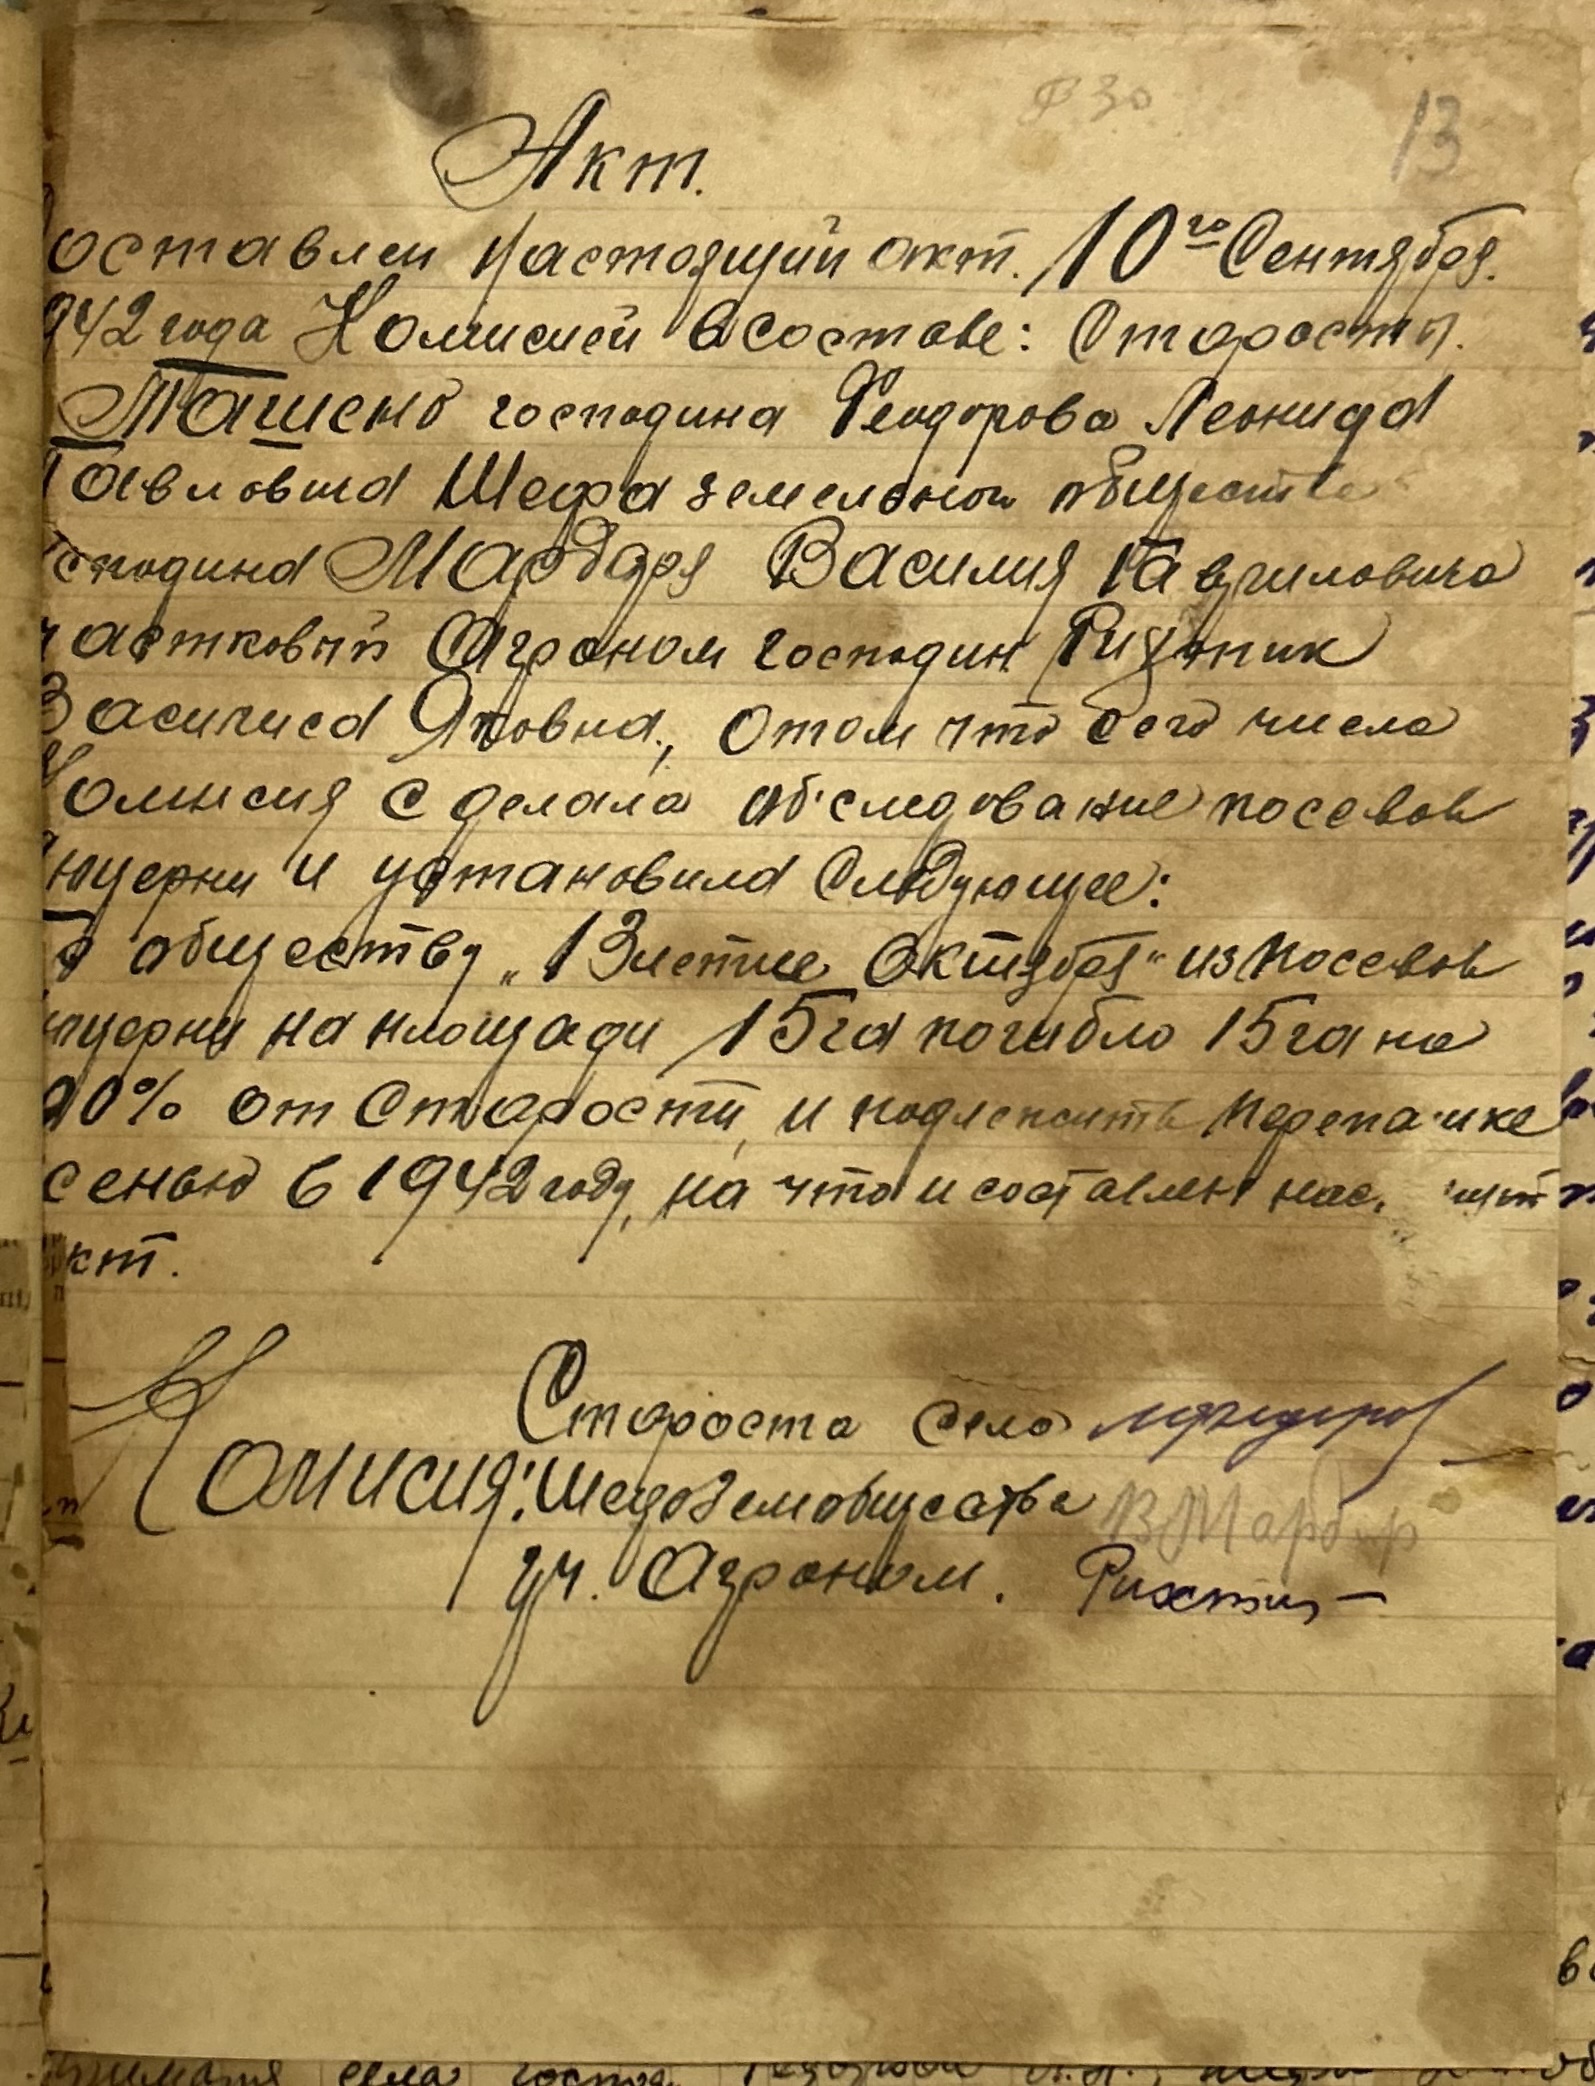 Ф 30
13
Акт.
оставлен настоящий акт. 10го Сентября.
942 года Комисией в составе: Старосты.
Ташено господина Феодорова Леонида
Павловича Шефа земельного общества
господина Марбаря Василия Гавриловича
частковый Агроном господин
Яковна, о том что сего числа
Комисия сделала обследование посевов
юцерни и установила Следующее:
По обществу „13летие Октября" из посевов
юцерни на площади 15га погибло 15га на
00% от Старости, и подлежить перепашке
сенью в 1942 году, на что и составлен
кт.
Староста села
Комисия: Шефа Земобщества В Марбар
Уч. Агроном.